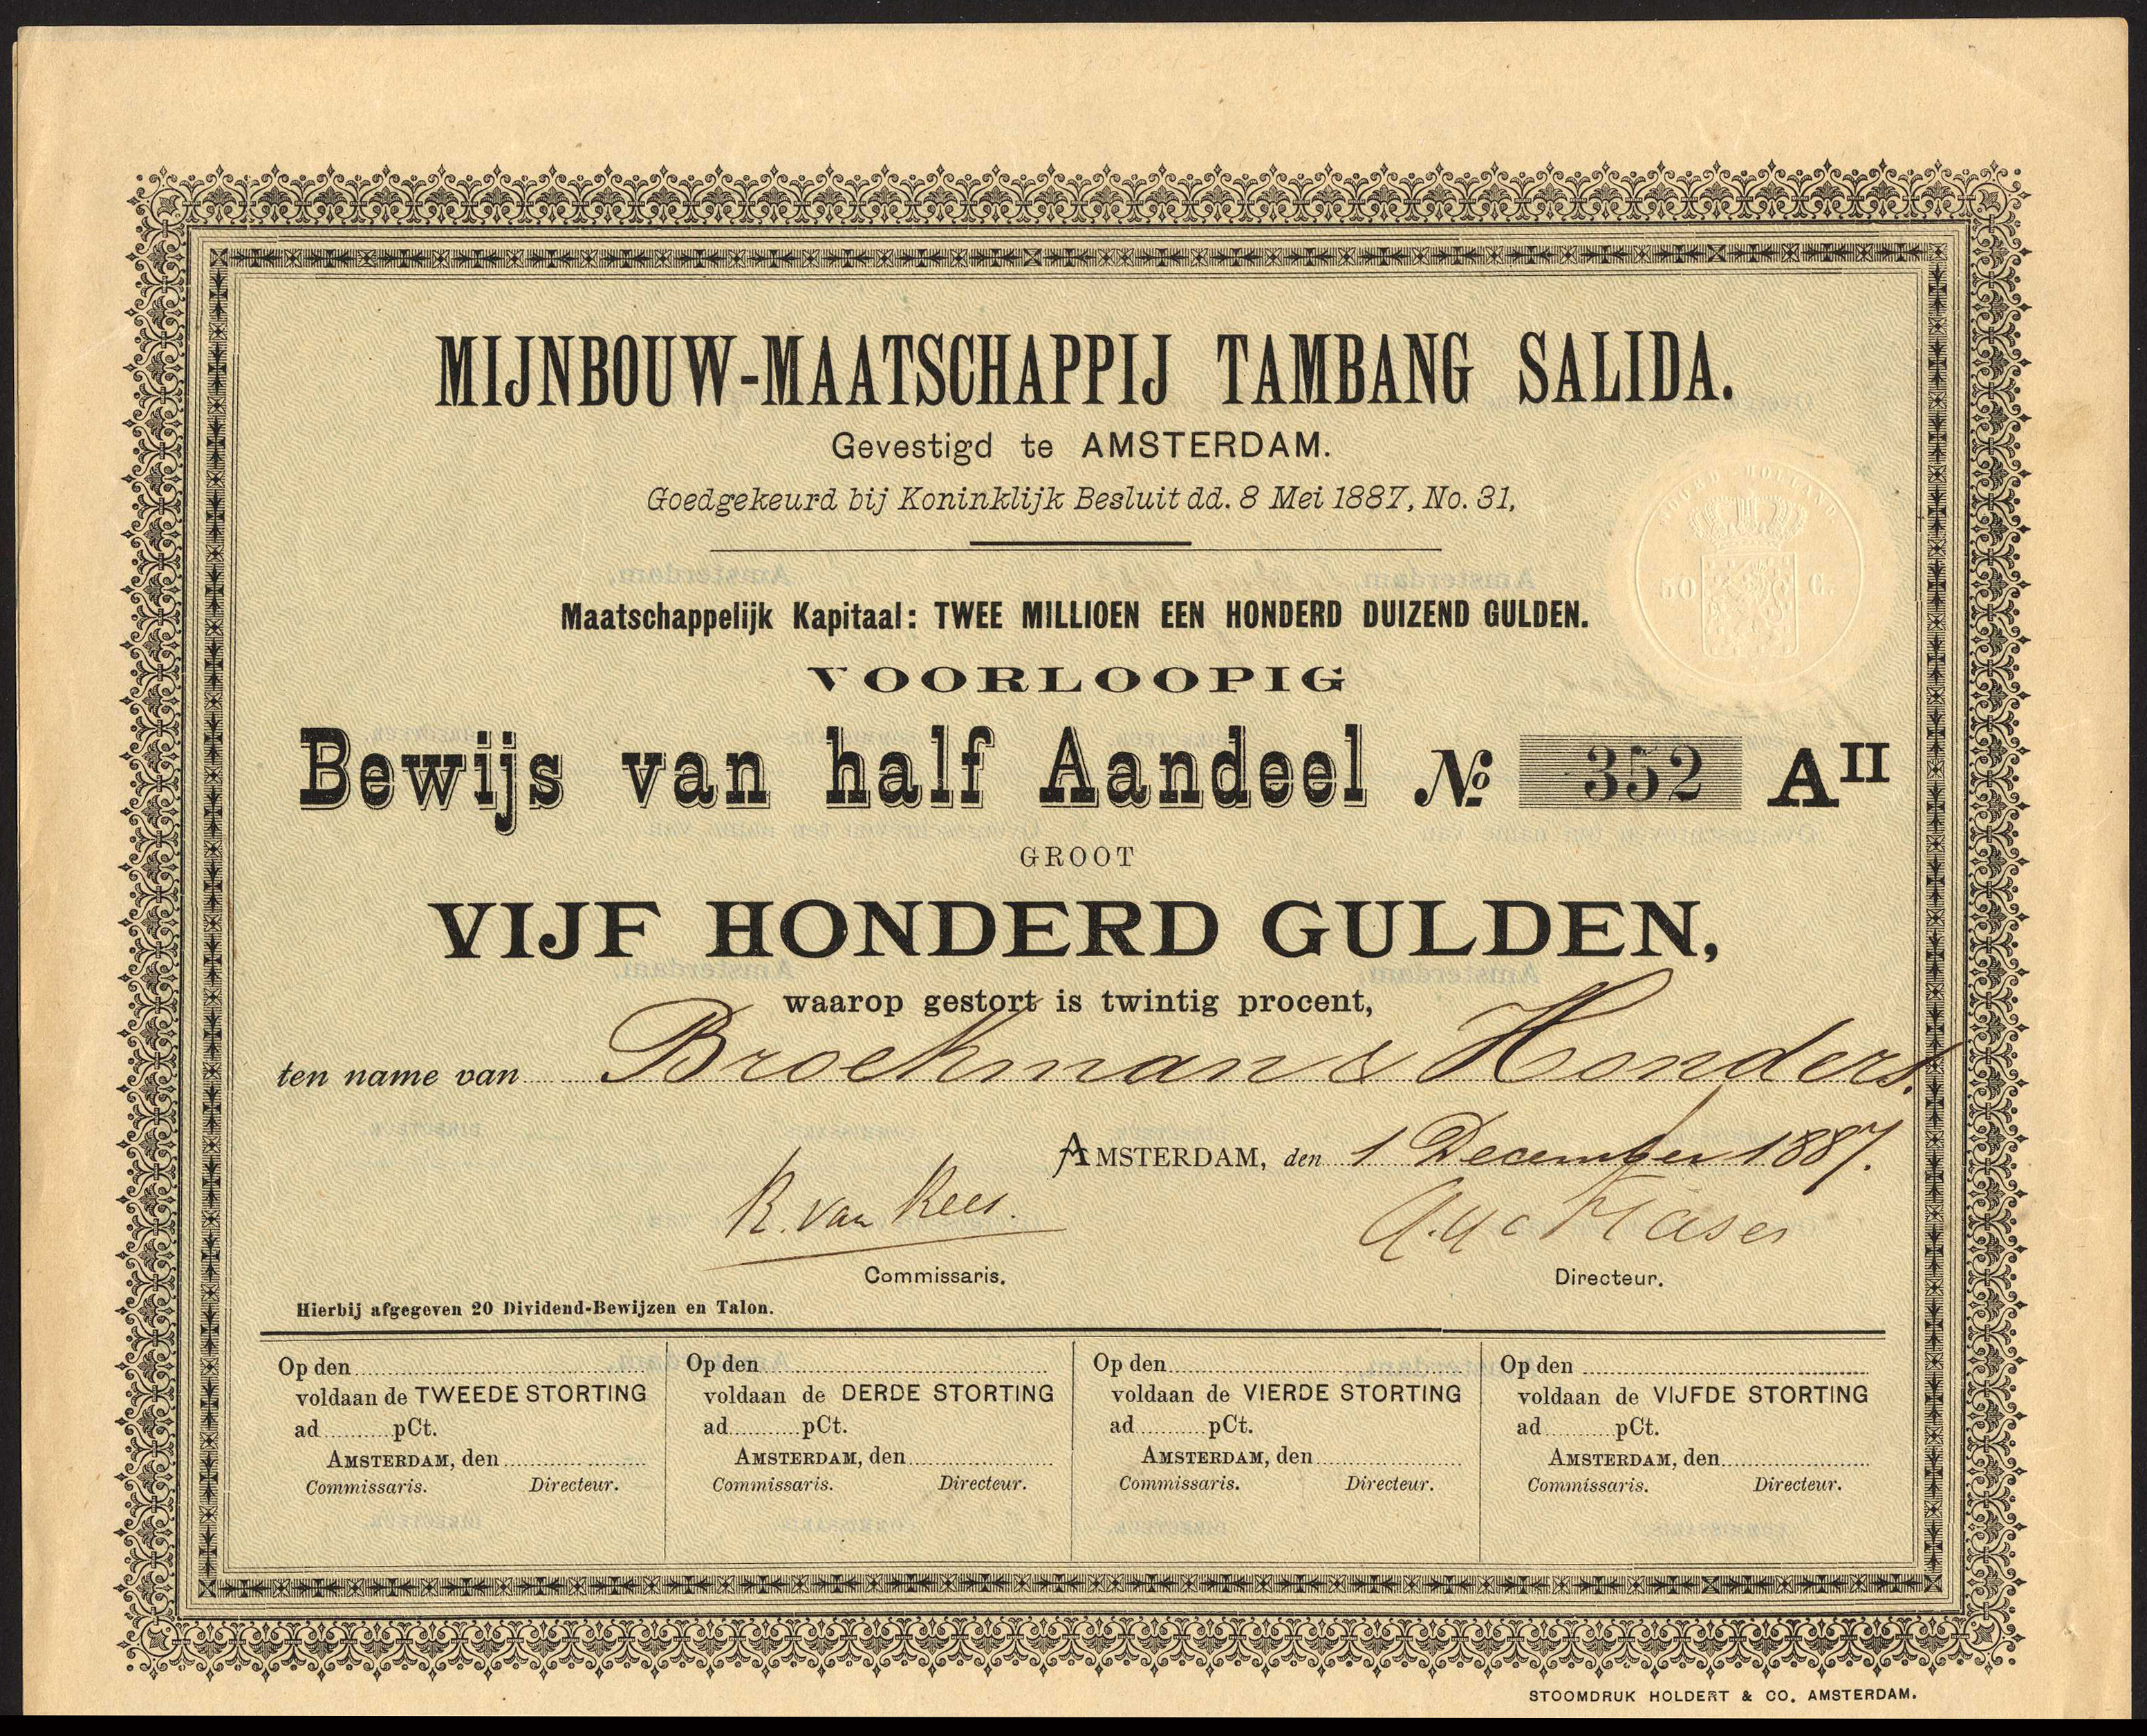 MIJNBOUW-MAATSCHAPPIJ TAMBANG SALIDA.
Gevestigd te AMSTERDAM.
Goedgekeurd bij Koninklijk Besluit dd. 8 Mei 1887, No. 31,
NOORD-HOLLAND
50 C.
Maatschappelijk Kapitaal: TWEE MILLIOEN EEN HONDERD DUIZEND GULDEN.
VOORLOOPIG
Bewijs van half Aandeel No 352 AII
GROOT
VIJF HONDERD GULDEN,
waarop gestort is twintig procent,
ten name van Broekman & Honders.
AMSTERDAM, den 1 December 1887.
R. van Rees.
Commissaris. Directeur.
Hierbij afgegeven 20 Dividend-Bewijzen en Talon.
Op den
voldaan de TWEEDE STORTING
ad pCt.
AMSTERDAM, den
Commissaris. Directeur.
Op den
voldaan de DERDE STORTING
ad pCt.
AMSTERDAM, den
Commissaris. Directeur.
Op den
voldaan de VIERDE STORTING
ad pCt.
AMSTERDAM, den
Commissaris. Directeur.
Op den
voldaan de VIJFDE STORTING
ad pCt.
AMSTERDAM, den
Commissaris. Directeur.
STOOMDRUK HOLDERT & CO. AMSTERDAM.